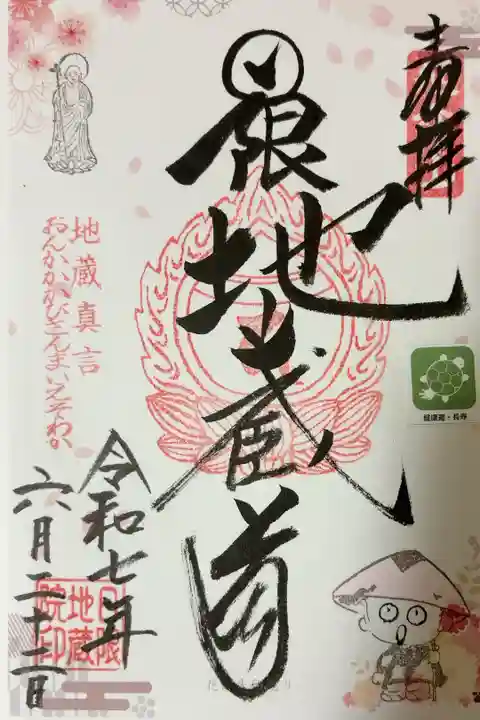 奉拝
日限地蔵尊
健康運・長寿
地蔵真言
おんかかかびさんまいえそわか
令和七年
六月二十二日
日限
地蔵
院印